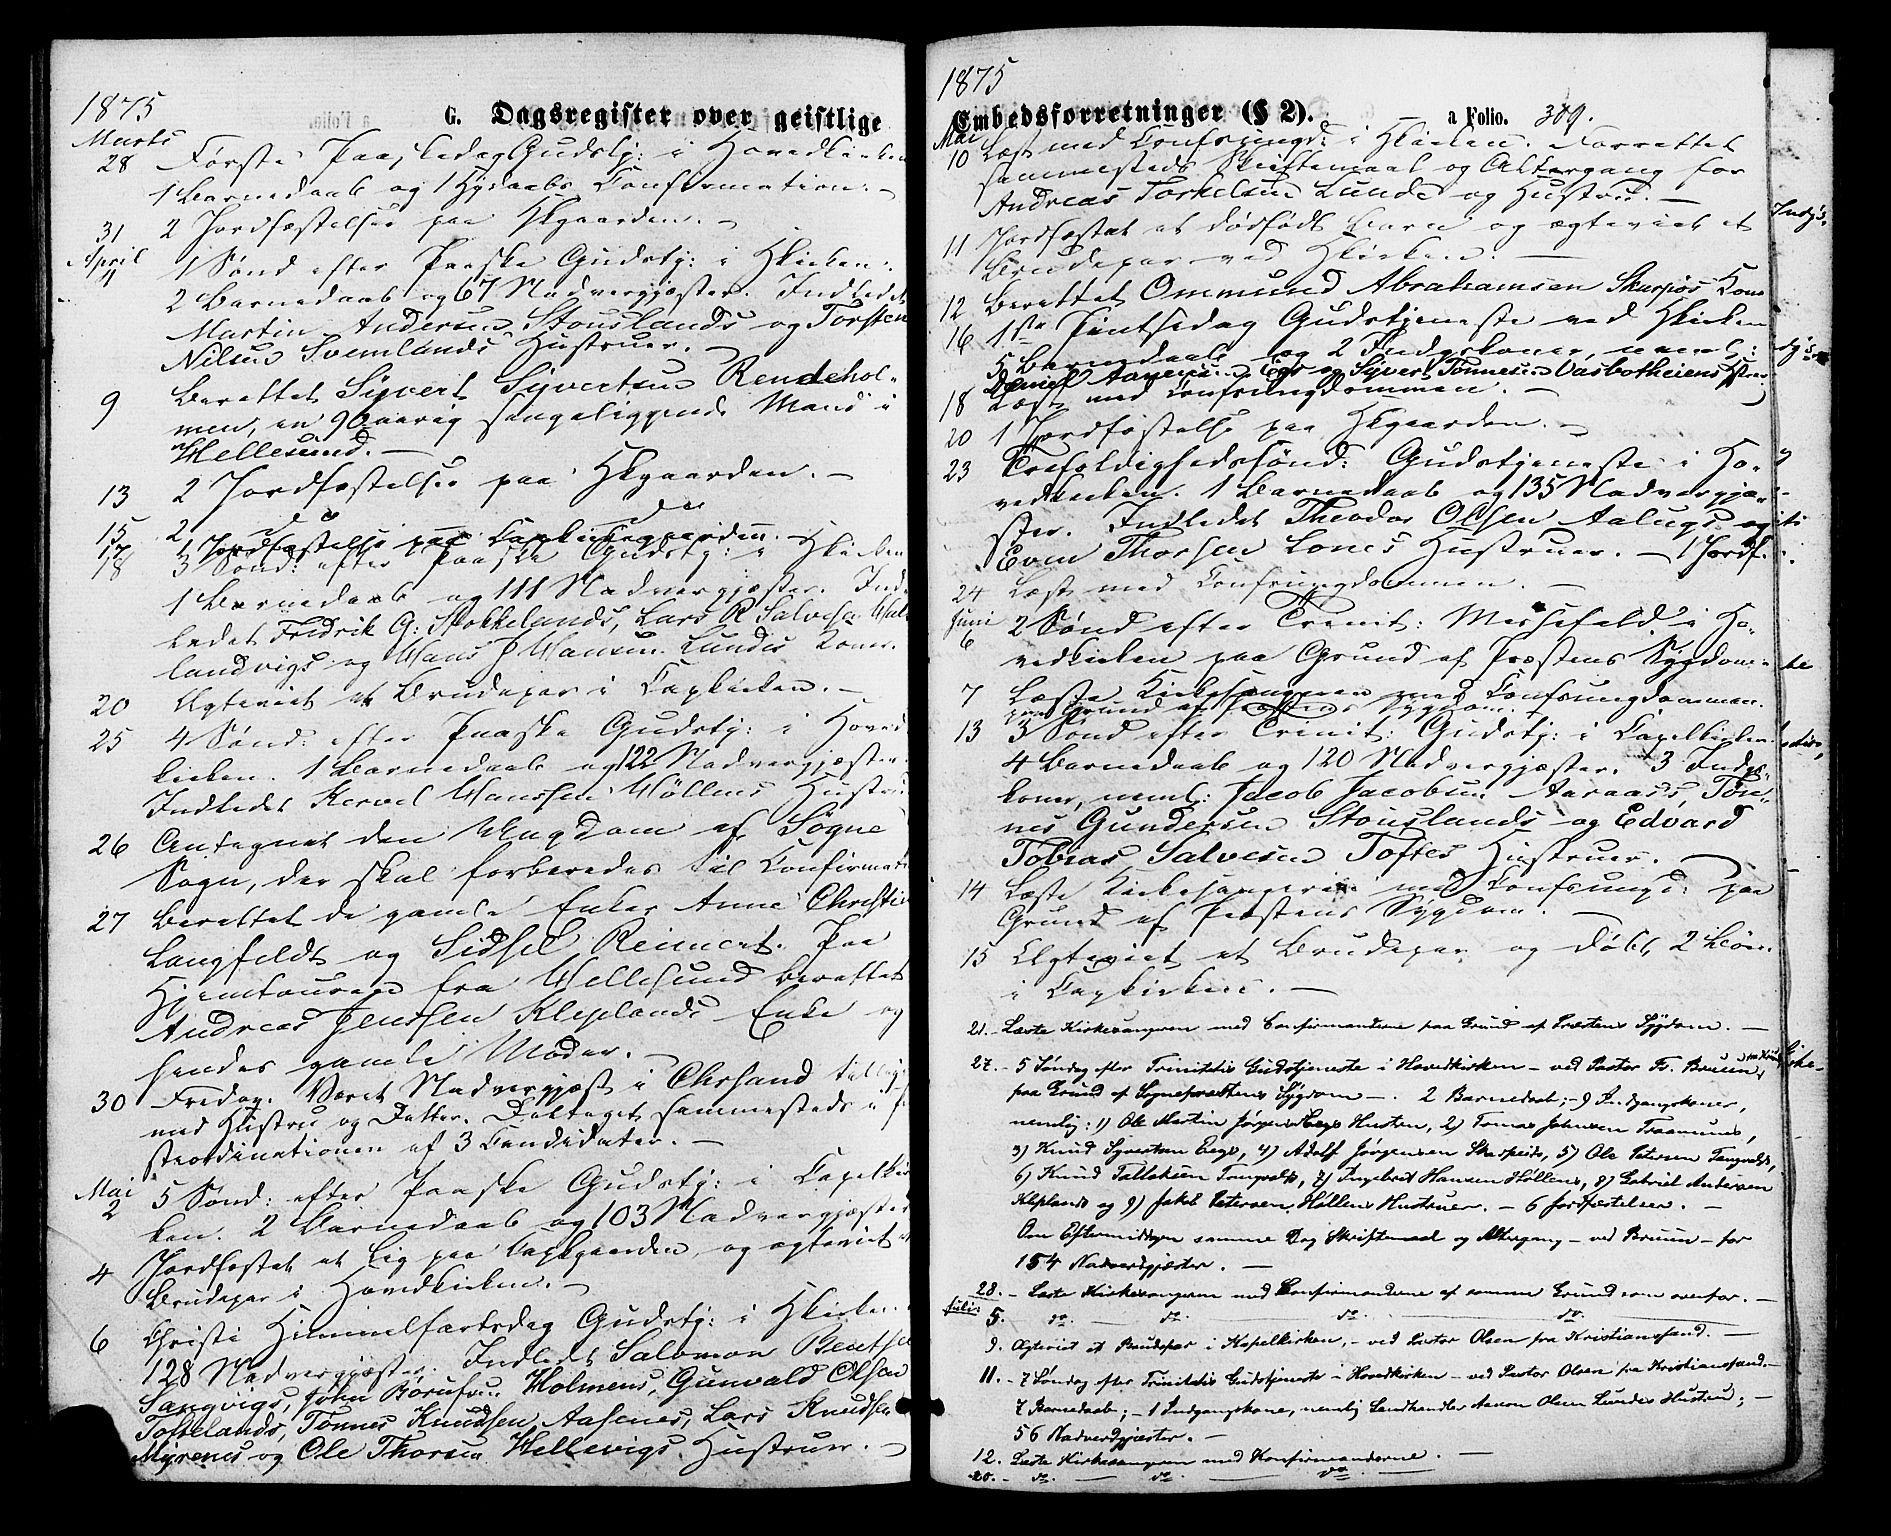 1875
G. Dagsregister over geistlige
Marts
28 Første Paaskedag Gudstj: i Hovedkirken
1 Barnedaab og 1 Hjdaabs Confirmation. –
31 2 Jordfæstelser paa Hkgaarden. –
April
4 1 Sønd efter Paaske Gudstj: i Hkirken.
2 Barnedaab og 67 Nadvergjæster. Indledet
Martin Andersen Stouslands og Torsten
Nilsen Svemlands Hustruer. –
9 Berettet Syvert Syvertsen Rendehol-
men, en 90aarig sengeliggende Mand i
Hellesund. –
13 2 Jordfæstelser paa Hkgaarden. –
15 2 do do
17 1 Jordfæstelse paa Capkirkegaarden. –
18 3 Sønd: efter Paaske Gudstj: i Hkirken
1 Barnedaab og 111 Nadvergjæster. Ind-
ledet Fredrik G: Stokkelands, Lars R Salvesen
landvigs og Hans J Hansen Lundes Koner.
20 Ægteviet et Brudepar i Capkirken. –
25 4 Sønd: efter Paaske Gudstj: i Hoved
kirken. 1 Barnedaab og 122 Nadvergjæster.
Indledet Kervel Hanssen Höllens Hustru
26 Antegnet den Ungdom af Søgne
Sogn, der skal forberedes til Confirmat
27 Berettet de gamle Enker Anne Christi
Langfeldt og Sidsel Reinert. Paa
Hjemtouren fra Hellesund berettet
Andreas Jenssen Kleplands Enke og
hendes gamle Moder. –
30 Fredag. Været Nadvergjæst i Chrsand tillige
med Hustru og Datter. Deltaget sammesteds i
stordinationen af 3 Candidater. –
Mai
2 5 Sønd: efter Paaske Gudstj: i Capelkir
ken. 2 Barnedaab og 103 Nadvergjæster
4 Jordfæstet et Lig paa Capkgaarden og ægteviet et
Brudepar i Hovedkirken. –
6 Christi Himmelfartsdag Gudstj: i Hkirken
128 Nadvergjæster. Indledet Salomon Bentsen
Langvigs, John Börufsen Holmens, Gunvald Olsen
Toftelands, Tønnes Knudsen Aasenes, Lars Knudsen
Myrenes og Ole Thorsen Hellevigs Hustruer. –
1875
Embedsforretninger (§ 2). a Folio. 309.
Mai
10 Læst med Confsungd: i Hkirken. Forrettet
sammesteds Skriftemaal og Altergang for
Andreas Torkelsen Lunde og Hustru. –
11 Jordfæstet et dødfødt Barn og ægteviet et
Brudepar ved Hkirken. –
12 Berettet Ommund Abrahamsen Skarpøs Kone
16 1ste Pintsedag Gudstjeneste ved Hkirken
5 Barnedaab og 2 Indgskoner, neml:
Daniel Aanensen Egs og Syvert Tønnesen Vasbotheiens
18 Læst med Confsungdommen. –
20 1 Jordfæstelse paa Hkgaarden. –
23 Trefoldighedssønd: Gudstjeneste i Ho-
vedkirken. 1 Barnedaab og 135 Nadvergjæ-
ster. Indledet Theodor Olsen Aalugs og
Even Thorsen Lones Hustruer. – 1 Jordf.
24 Læst med Confsungdommen. –
Juni
6 2 Sønd efter Trinit: Messefald i Ho-
vedkirken paa Grund af Præstens Sygdom
7 Læste Kirkesangeren med Confsungdommen
paa Grund af Præstens Sygdom.
13 3 Sønd efter Trinit: Gudstj: i Capelkirken
4 Barnedaab og 120 Nadvergjæster. 3 Indgs-
koner, neml: Jacob Jacobsen Aaraas's, Tøn-
nes Gundersen Stouslands og Edvard
Tobias Salvesen Toftes Hustruer. –
14 Læste Kirkesangeren med Confsungd: paa
Grund af Præstens Sygdom. –
15 Ægteviet et Brudepar og døbt 2 Børn
i Capkirken. –
21. – Læste Kirkesangeren med Confirmanderne paa Grund af Præstens Sygdom. –
27. – 5 Søndag efter Trinitatis Gudstjeneste i Hovedkirken – ved Pastor Fr. Bruun,
paa Grund af Sognepræstens Sygdom –. 2 Barnedaab; – 9 Indgangskoner,
nemlig: 1) Ole Martin Jørgensens Hustru, 2) Tomas Johnsen Traanums,
3) Knud Syvertsen Eegs, 4) Adolf Jörgensen Skarpeids, 5) Ole Petersen Tangvalds,
6) Knud Tallaksen Tangvalds, 7) Ingebrit Hansen Höllens, 8) Gabriel Andersen
Kleplands og 9) Jakob Petersen Höllens Hustruer. – 6 Jordfæstelser. –
Om Eftermiddagen samme Dag Skriftemaal og Altergang – ved Bruun – for
154 Nadverdgjæster. –
28. – Læste Kirkesangeren med Confirmanderne af samme Grund som ovenfor. –
Juli:
5. do. – do. – do. – do. –
9. Ægteviet et Brudepar i Kapelkirken, – ved Pastor Olsen fra Kristianssand. –
11. – 7 Søndag efter Trinitatis Gudstjeneste i Hovedkirken – ved Pastor Olsen fra Kristianssand. –
7 Barnedaab; – 1 Indgangskone, nemlig Landhandler Aanon Olsen Lundes Hustru; –
56 Nadverdgjæster. –
12. Læste Kirkesangeren med Konfirmanderne. –
20. – do. – do. – do. –